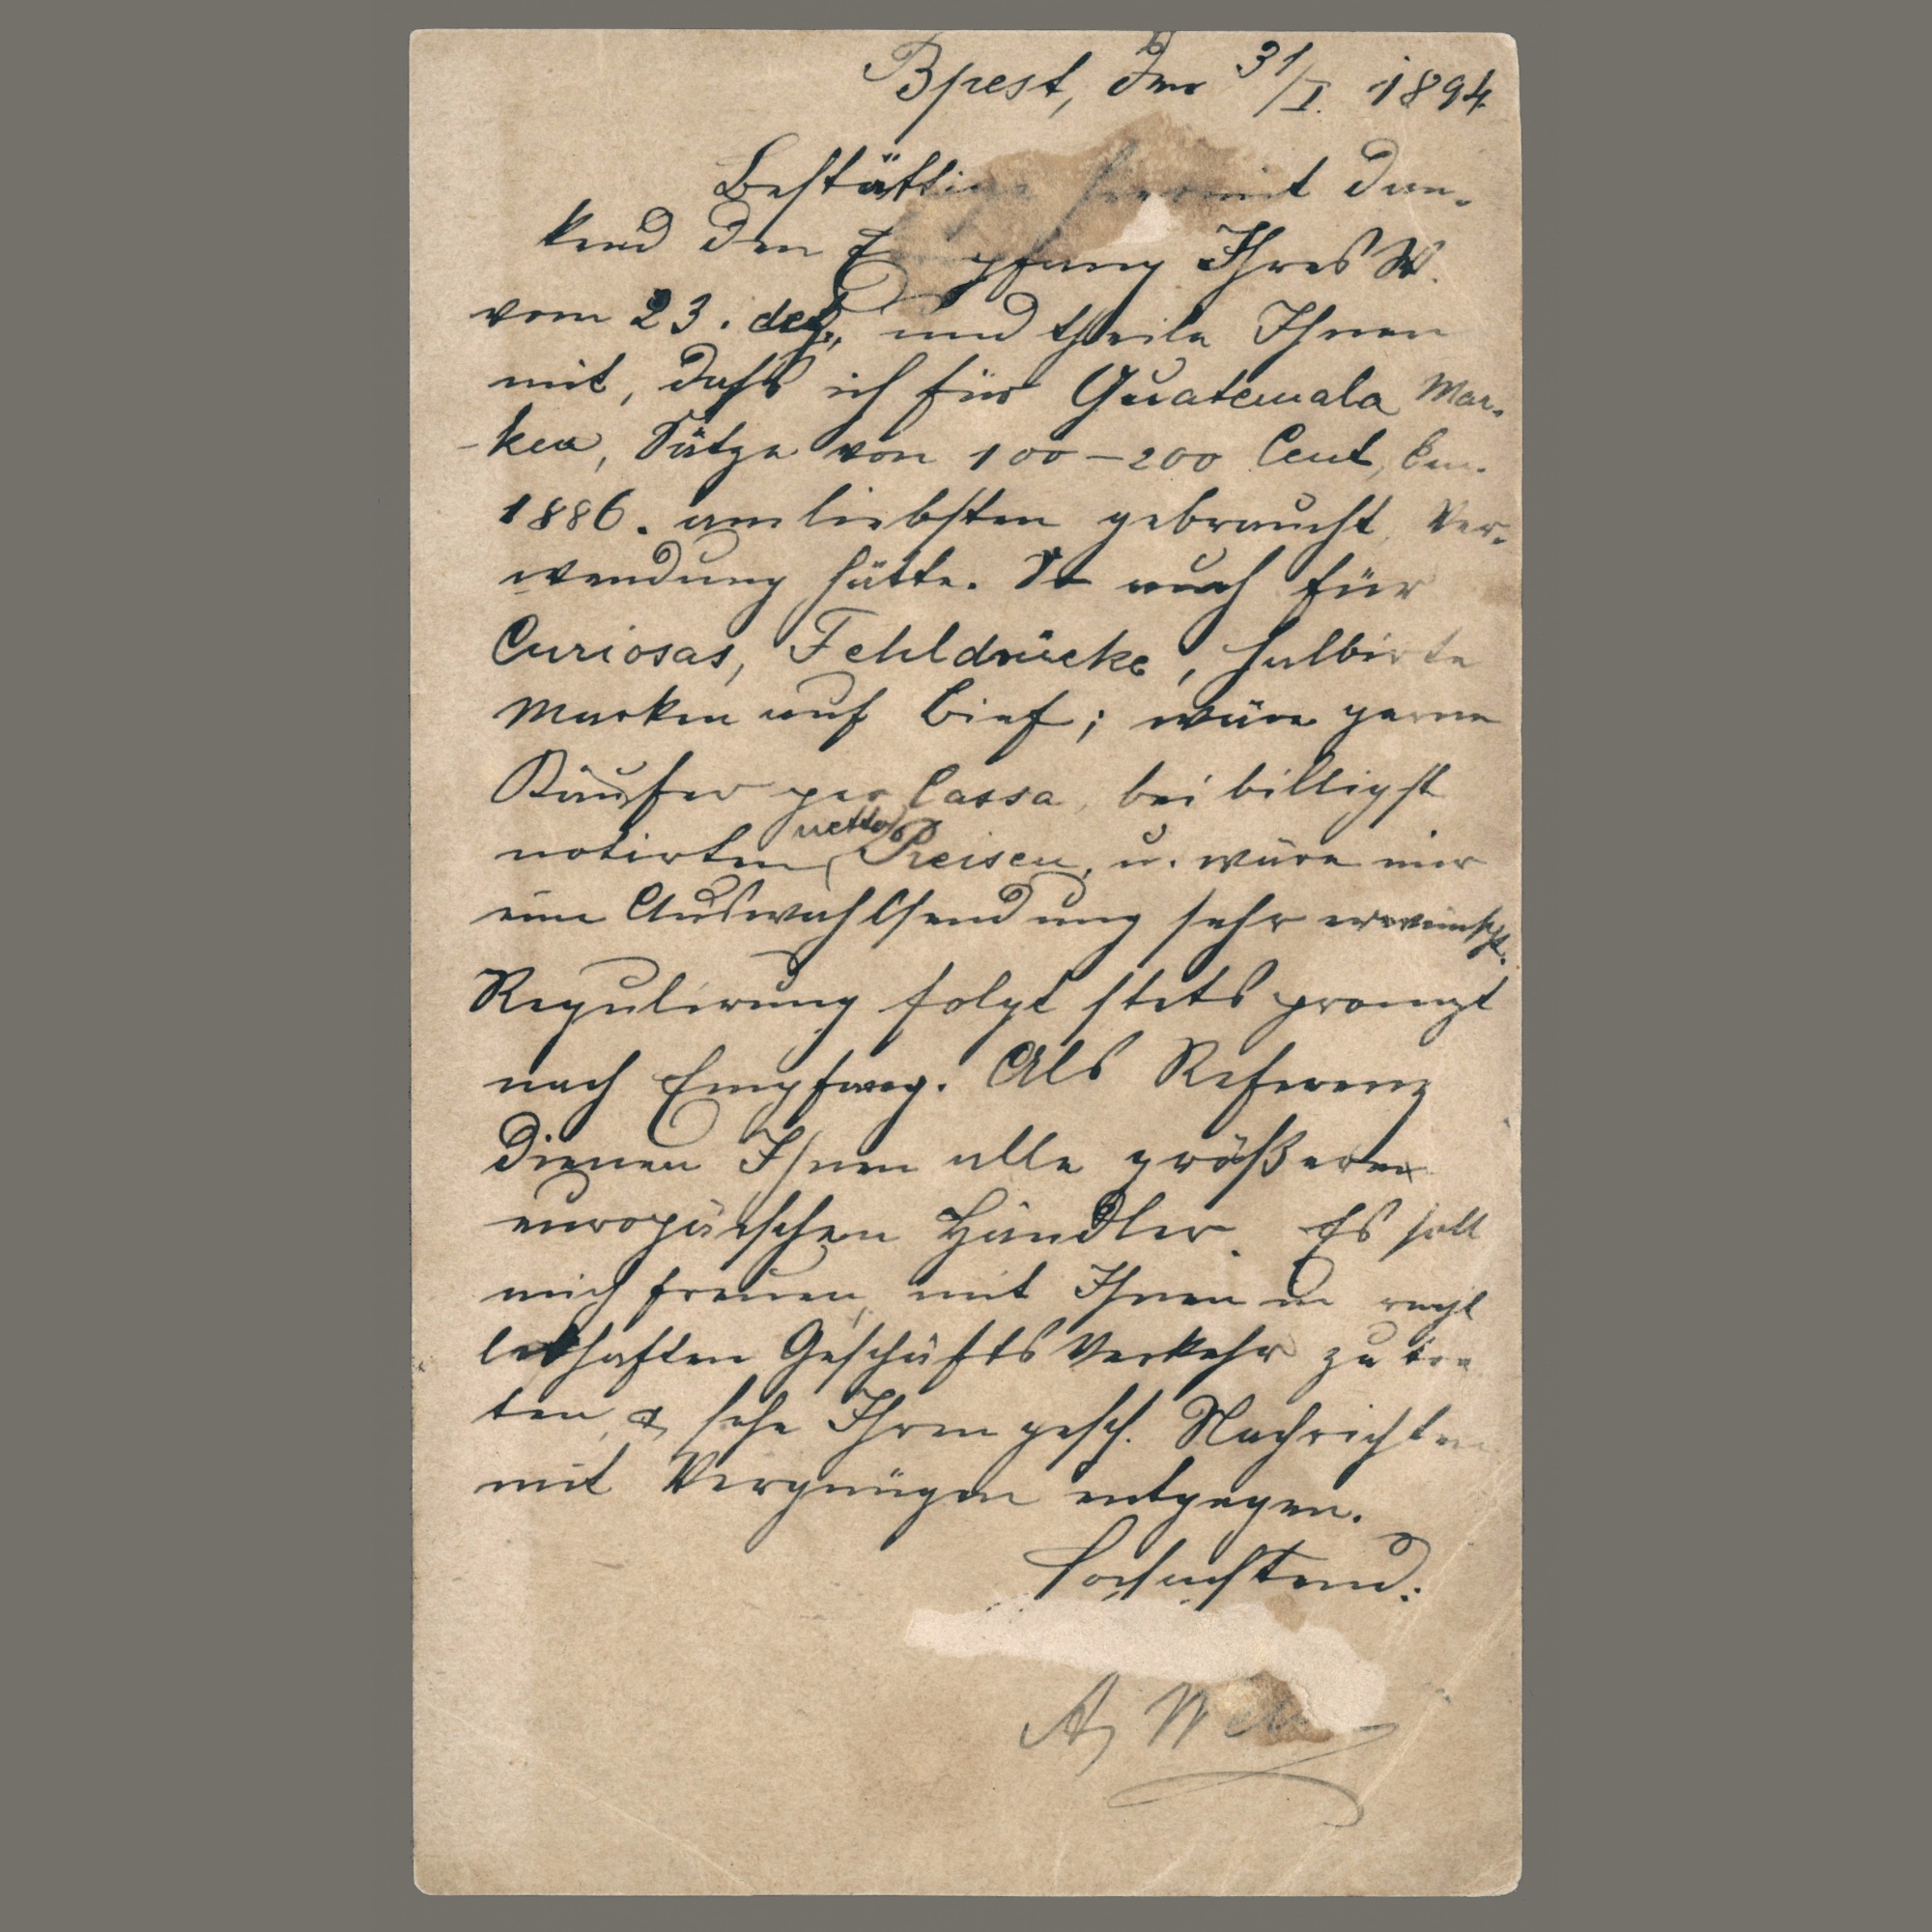 Bpest, den 31/I. 1894.
Bestättige hiermit dan-
kend den Empfang Ihres W.
vom 23. dez., und theile Ihnen
mit, daß ich für Guatemala Mar-
-ken, Sätze von 100-200 Cent, Em.
1886. am liebsten gebraucht, Ver-
wendung hätte. So auch für
Curiosas, Fehldrücke, halbirte
Marken auf Brief; wäre gerne
Käufer per Cassa, bei billigst
notirten netto Preisen, u. wäre mir
eine Auswahlsendung sehr erwünscht.
Regulirung folgt stets prompt
nach Empfang. Als Referenz
dienen Ihnen alle größeren
europäischen Händler. Es soll
mich freuen, mit Ihnen in recht
lebhaften Geschäfts Verkehr zu tre
ten, & sehe Ihren gesch. Nachrichten
mit Vergnügen entgegen.
Hochachtend: